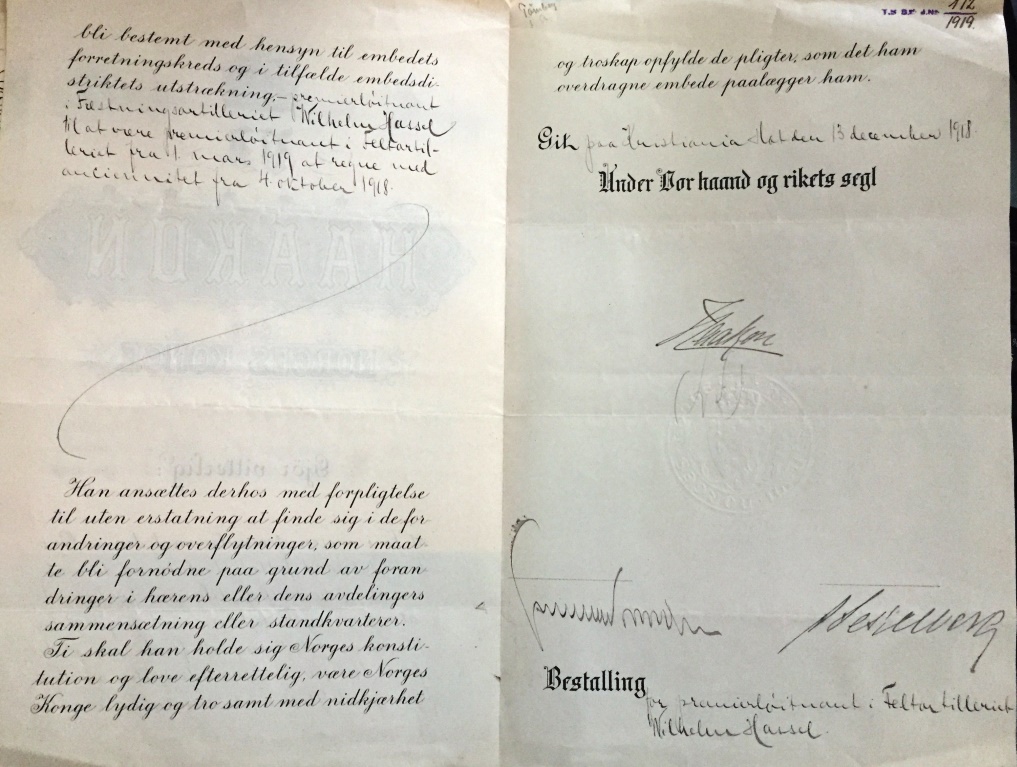 bli bestemt med hensyn til embedets
forretningskreds og i tilfælde embedsdi-
striktets utstrækning,- premierløitnant
i Fæstningsartilleriet Wilhelm Hassel
til at være premierløitnant i Feltartil-
leriet fra 1 mars 1919 at regne med
anciennitet fra 4 oktober 1918.
HAAKON
NORGES KONGE
Gjør vitterlig:
Han ansættes derhos med forpligtelse
til uten erstatning at finde sig i de for
andringer og overflytninger, som maat-
te bli fornødne paa grund av foran
dringer i hærens eller dens avdelingers
sammensætning eller standkvarterer.
Ti skal han holde sig Norges konsti-
tution og love efterrettelig, være Norges
Konge lydig og tro samt med nidkjærhet
112
1919.
og troskap opfylde de pligter, som det ham
overdragne embede paalægger ham.
Git paa Kristiania Slot den 13 december 1918.
Under Vor haand og rikets segl
Haakon
Bestalling
for premierløitnant i Feltartilleriet
Wilhelm Hassel.